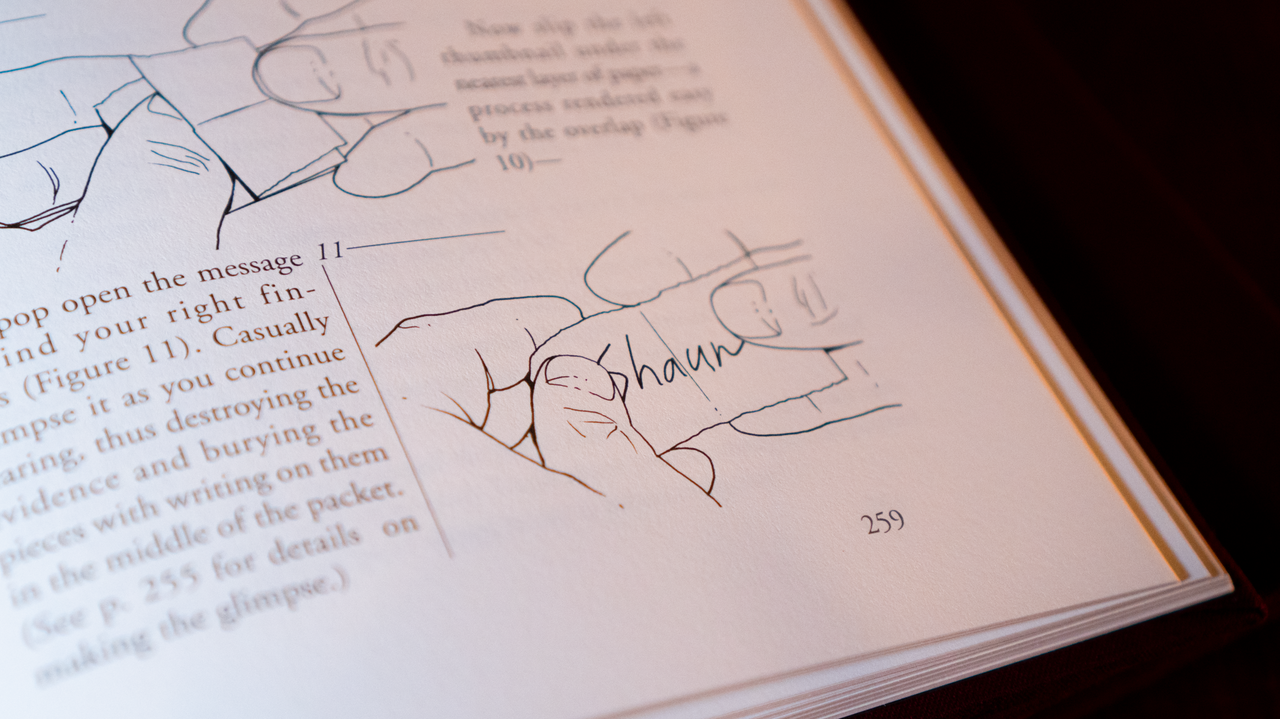 Now slip the left
thumbnail under the
nearest layer of paper—a
process rendered easy
by the overlap (Figure
10)—
pop open the message 11
ind your right fin-
s (Figure 11). Casually
mpse it as you continue
aring, thus destroying the
vidence and burying the
pieces with writing on them
in the middle of the packet.
(See p. 255 for details on
making the glimpse.)
Shaun
259